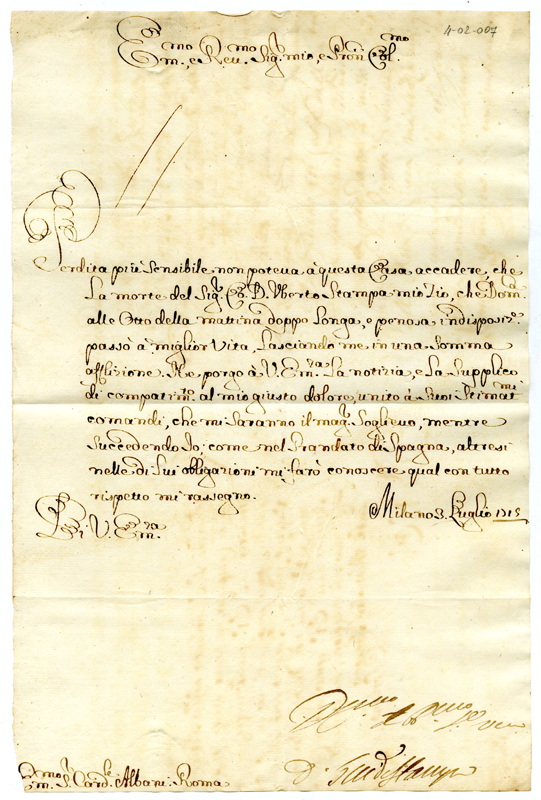 4-02-007
Em.mo, e Reu.mo Sig.r mio, e Pron Col.mo
Perdita più sensibile non poteua à questa Casa accadere, che
La morte del Sig.r Co. D. Vberto Stampa mio Zio, che Dom.
alle Otto della mattina doppo Longa, e penosa indisposiz.e
passò à miglior Vita, Lasciando me in una somma
afflizione. Ne porgo à V. Em.za La notizia, e La supplico
di compatirm.i al mio giusto dolore, unito à suoi stimat.mi
comandi, che mi saranno il mag.r sollieuo, mentre
succedendo Io, come nel Grandato di Spagna, altresi
nelle di Lui obligazioni mi farò conoscere qual con tutto
rispetto mi rassegno.
Milano 3. Luglio 1715
Di V. Em.za
D.
Em.mo S.r Card.le Albani: Roma